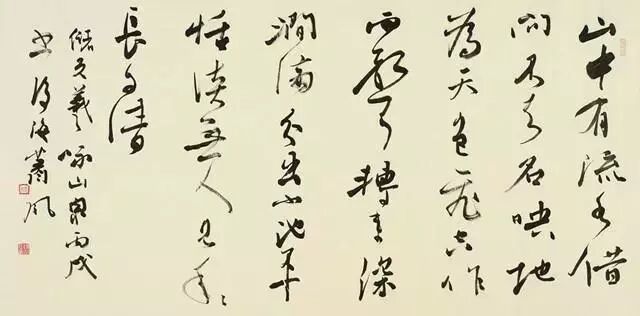 山中有流水借
問不知名映地
為天色飛空作
雨聲轉來深
澗滿分出小池平
恬淡無人見年々
長自清
儲光羲詠山泉丙戌
書海蕭風